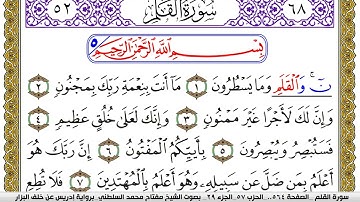 ٥٢ سُورَةُ الْقَلَمِ ٦٨
بِسْمِ اللَّهِ الرَّحْمَٰنِ الرَّحِيمِ
نٓ وَالْقَلَمِ وَمَا يَسْطُرُونَ ١ مَا أَنتَ بِنِعْمَةِ رَبِّكَ بِمَجْنُونٍ ٢
وَإِنَّ لَكَ لَأَجْرًا غَيْرَ مَمْنُونٍ ٣ وَإِنَّكَ لَعَلَىٰ خُلُقٍ عَظِيمٍ ٤
فَسَتُبْصِرُ وَيُبْصِرُونَ ٥ بِأَييِّكُمُ الْمَفْتُونُ ٦ إِنَّ رَبَّكَ هُوَ
أَعْلَمُ بِمَن ضَلَّ عَن سَبِيلِهِ وَهُوَ أَعْلَمُ بِالْمُهْتَدِينَ ٧ فَلَا تُطِعِ
سورة القلم . الصفحة ٥٦٤ .. الحزب ٥٧ . الجزء ٢٩ . بصوت الشيخ مفتاح محمد السلطني . برواية إدريس عن خلف البزار